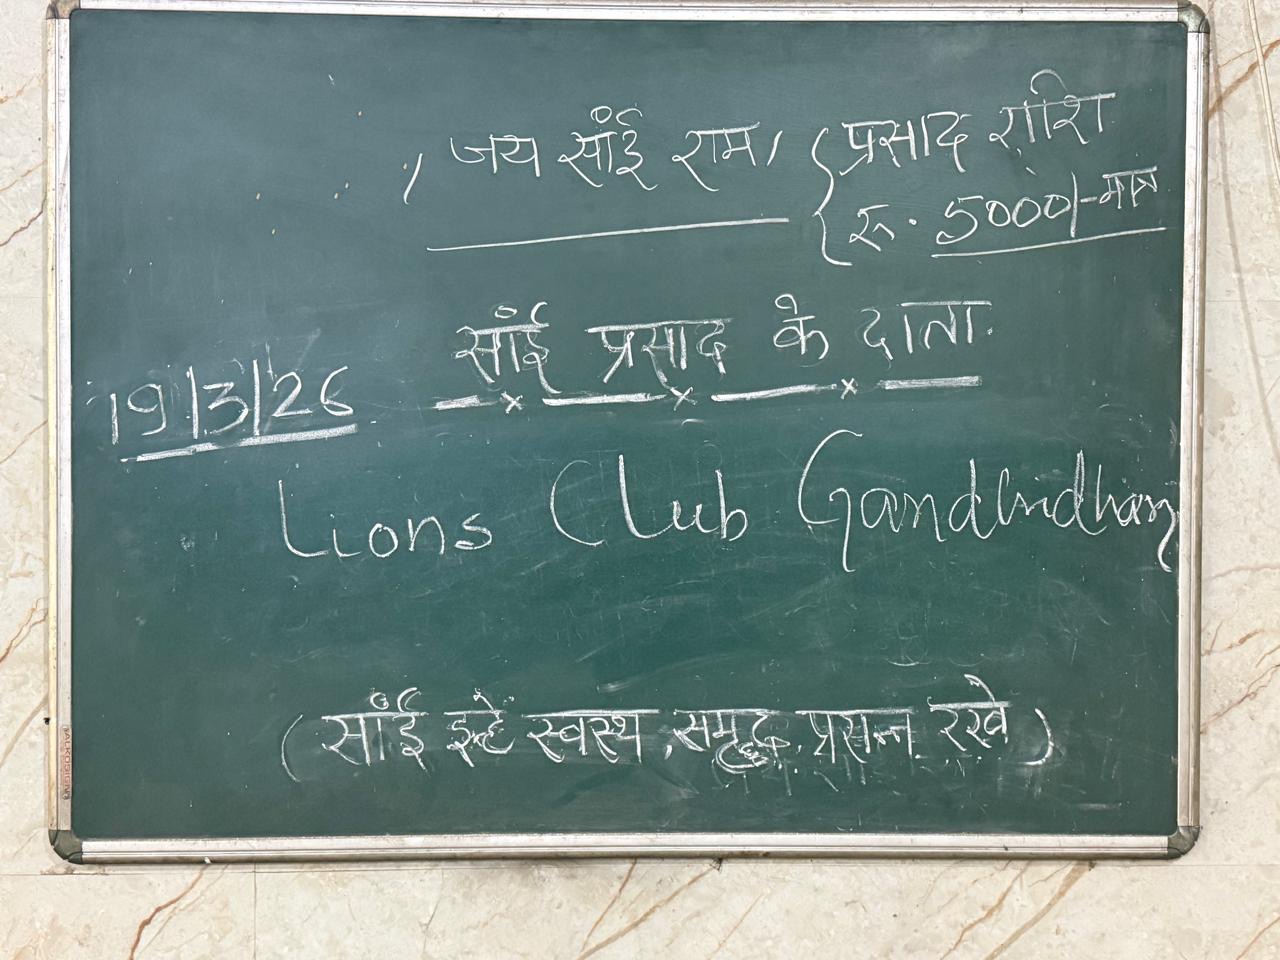 । जय सांई राम ।
प्रसाद राशि
रु. 5000/-मात्र
सांई प्रसाद के दाता.
19/3/26
Lions Club Gandhidham
(सांई इन्हें स्वस्थ, समृद्ध, प्रसन्न रखे)